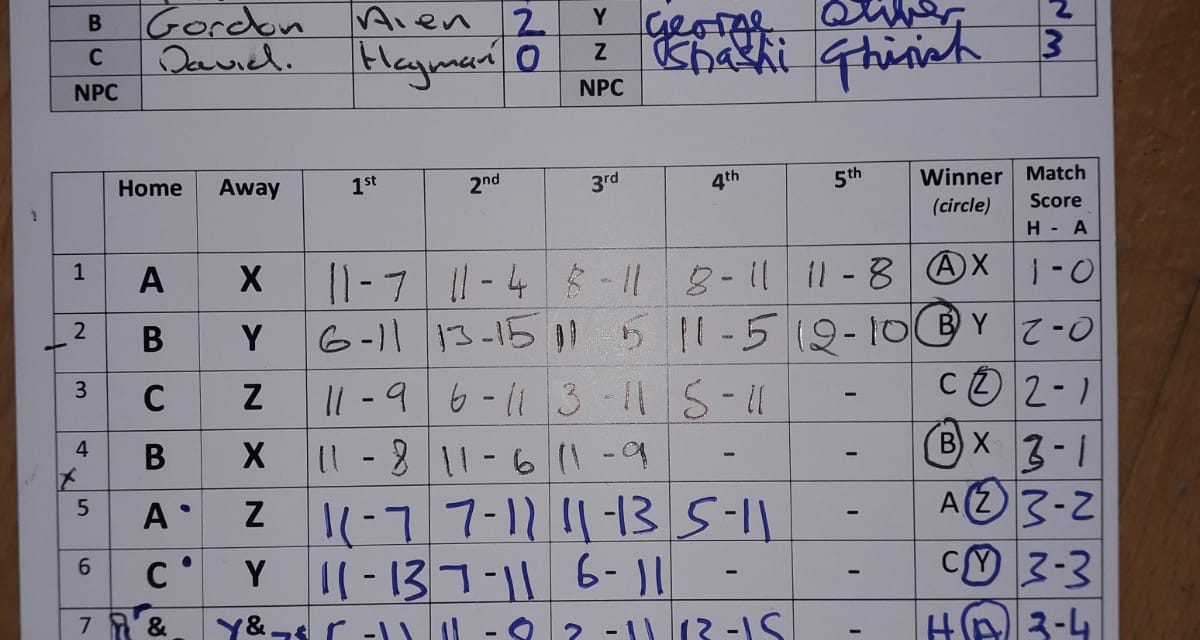 B Gordon Allen 2 Y George Oliver 2
C David. Hayman 0 Z Shashi Ghirish 3
NPC NPC
Home Away 1st 2nd 3rd 4th 5th Winner (circle) Match Score H - A
1 A X 11-7 11-4 8-11 8-11 11-8 A X 1-0
2 B Y 6-11 13-15 11 5 11-5 12-10 B Y 2-0
3 C Z 11-9 6-11 3-11 5-11 - C Z 2-1
4 B X 11-8 11-6 11-9 - - B X 3-1
5 A Z 11-7 7-11 11-13 5-11 - A Z 3-2
6 C Y 11-13 7-11 6-11 - - C Y 3-3
7 & Y& 11 - H A 3-4